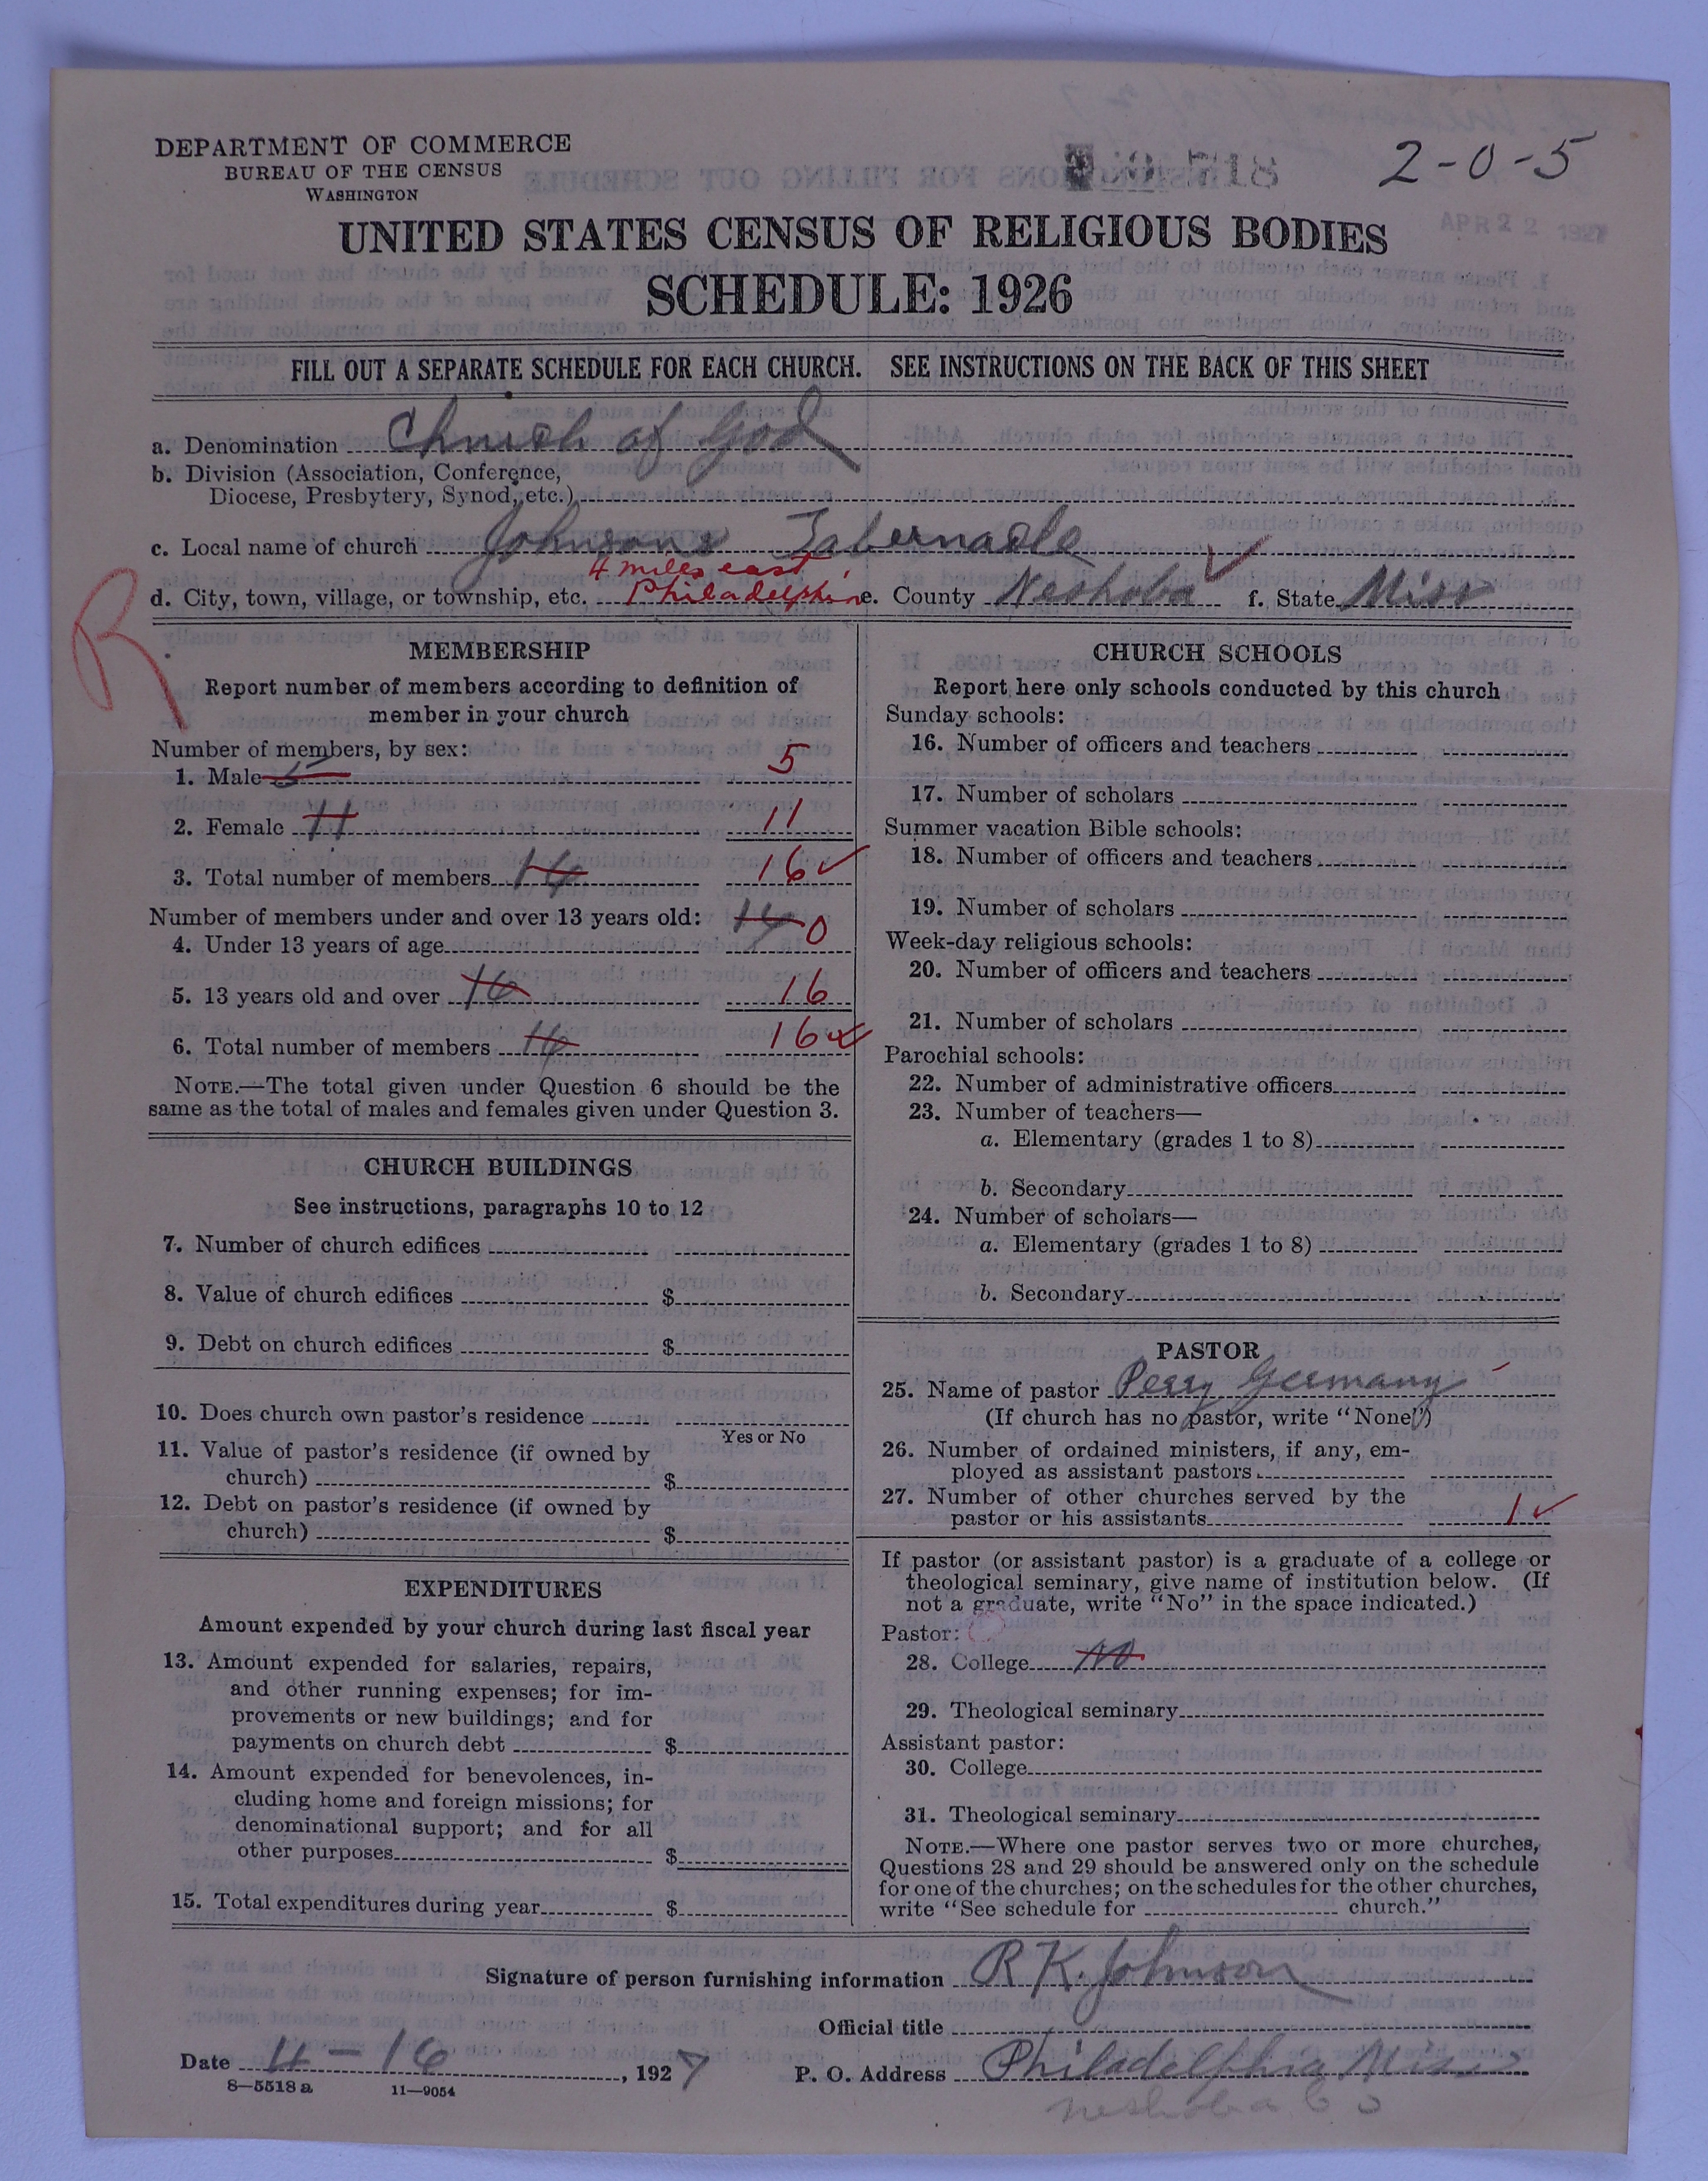 DEPARTMENT OF COMMERCE
BUREAU OF THE CENSUS
WASHINGTON
718
2-0-5
APR 22 1927
UNITED STATES CENSUS OF RELIGIOUS BODIES
SCHEDULE: 1926
FILL OUT A SEPARATE SCHEDULE FOR EACH CHURCH. SEE INSTRUCTIONS ON THE BACK OF THIS SHEET
a. Denomination Church of God
b. Division (Association, Conference,
Diocese, Presbytery, Synod, etc.)
c. Local name of church Johnsons Tabernacle
4 miles east
d. City, town, village, or township, etc. Philadelphia e. County Neshoba f. State Miss
R
MEMBERSHIP
Report number of members according to definition of
member in your church
Number of members, by sex:
1. Male 5 5
2. Female 11 11
3. Total number of members 16 16
Number of members under and over 13 years old:
4. Under 13 years of age 0
5. 13 years old and over 16 16
6. Total number of members 16 16
NOTE.—The total given under Question 6 should be the
same as the total of males and females given under Question 3.
CHURCH BUILDINGS
See instructions, paragraphs 10 to 12
7. Number of church edifices
8. Value of church edifices $
9. Debt on church edifices $
10. Does church own pastor's residence
Yes or No
11. Value of pastor's residence (if owned by
church) $
12. Debt on pastor's residence (if owned by
church) $
EXPENDITURES
Amount expended by your church during last fiscal year
13. Amount expended for salaries, repairs,
and other running expenses; for im-
provements or new buildings; and for
payments on church debt $
14. Amount expended for benevolences, in-
cluding home and foreign missions; for
denominational support; and for all
other purposes $
15. Total expenditures during year $
CHURCH SCHOOLS
Report here only schools conducted by this church
Sunday schools:
16. Number of officers and teachers
17. Number of scholars
Summer vacation Bible schools:
18. Number of officers and teachers
19. Number of scholars
Week-day religious schools:
20. Number of officers and teachers
21. Number of scholars
Parochial schools:
22. Number of administrative officers
23. Number of teachers—
a. Elementary (grades 1 to 8)
b. Secondary
24. Number of scholars—
a. Elementary (grades 1 to 8)
b. Secondary
PASTOR
25. Name of pastor Perry Germany
(If church has no pastor, write "None")
26. Number of ordained ministers, if any, em-
ployed as assistant pastors
27. Number of other churches served by the
pastor or his assistants 1
If pastor (or assistant pastor) is a graduate of a college or
theological seminary, give name of institution below. (If
not a graduate, write "No" in the space indicated.)
Pastor:
28. College No
29. Theological seminary
Assistant pastor:
30. College
31. Theological seminary
NOTE.—Where one pastor serves two or more churches,
Questions 28 and 29 should be answered only on the schedule
for one of the churches; on the schedules for the other churches,
write "See schedule for church."
Signature of person furnishing information R K. Johnson
Official title
Date 4-16, 1927 P. O. Address Philadelphia Miss
Neshoba Co
8—5518a 11—9054